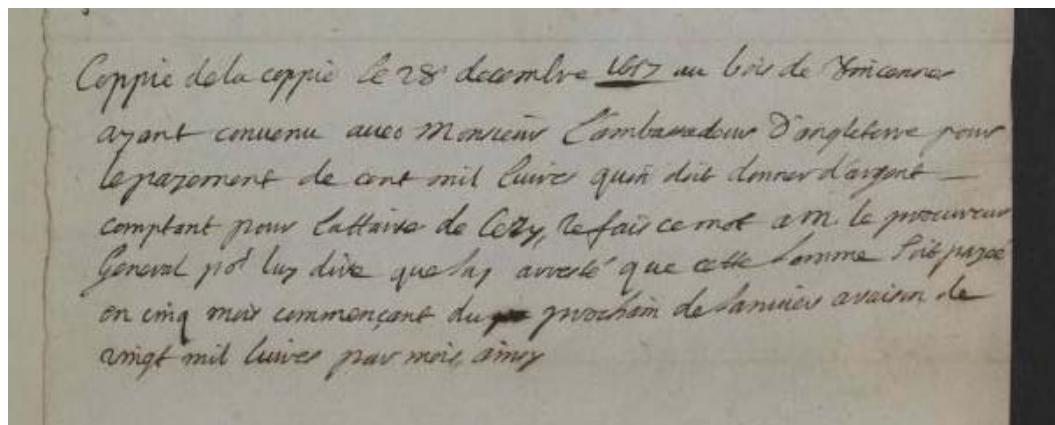 Coppie de la coppie le 28 decembre 1657 au bois de Vincennes
ayant convenu avec Monsieur L'ambassadeur D'angleterre pour
le payement de cent mil livres qu'on doit donner d'argent
comptant pour L'affaire de Cezy, Je fais ce mot a M. le procureur
General por luy dire que J'ay arresté que cette somme soit payée
en cinq mois commençant du prochain de Janvier a raison de
vingt mil livres par mois, ainsy